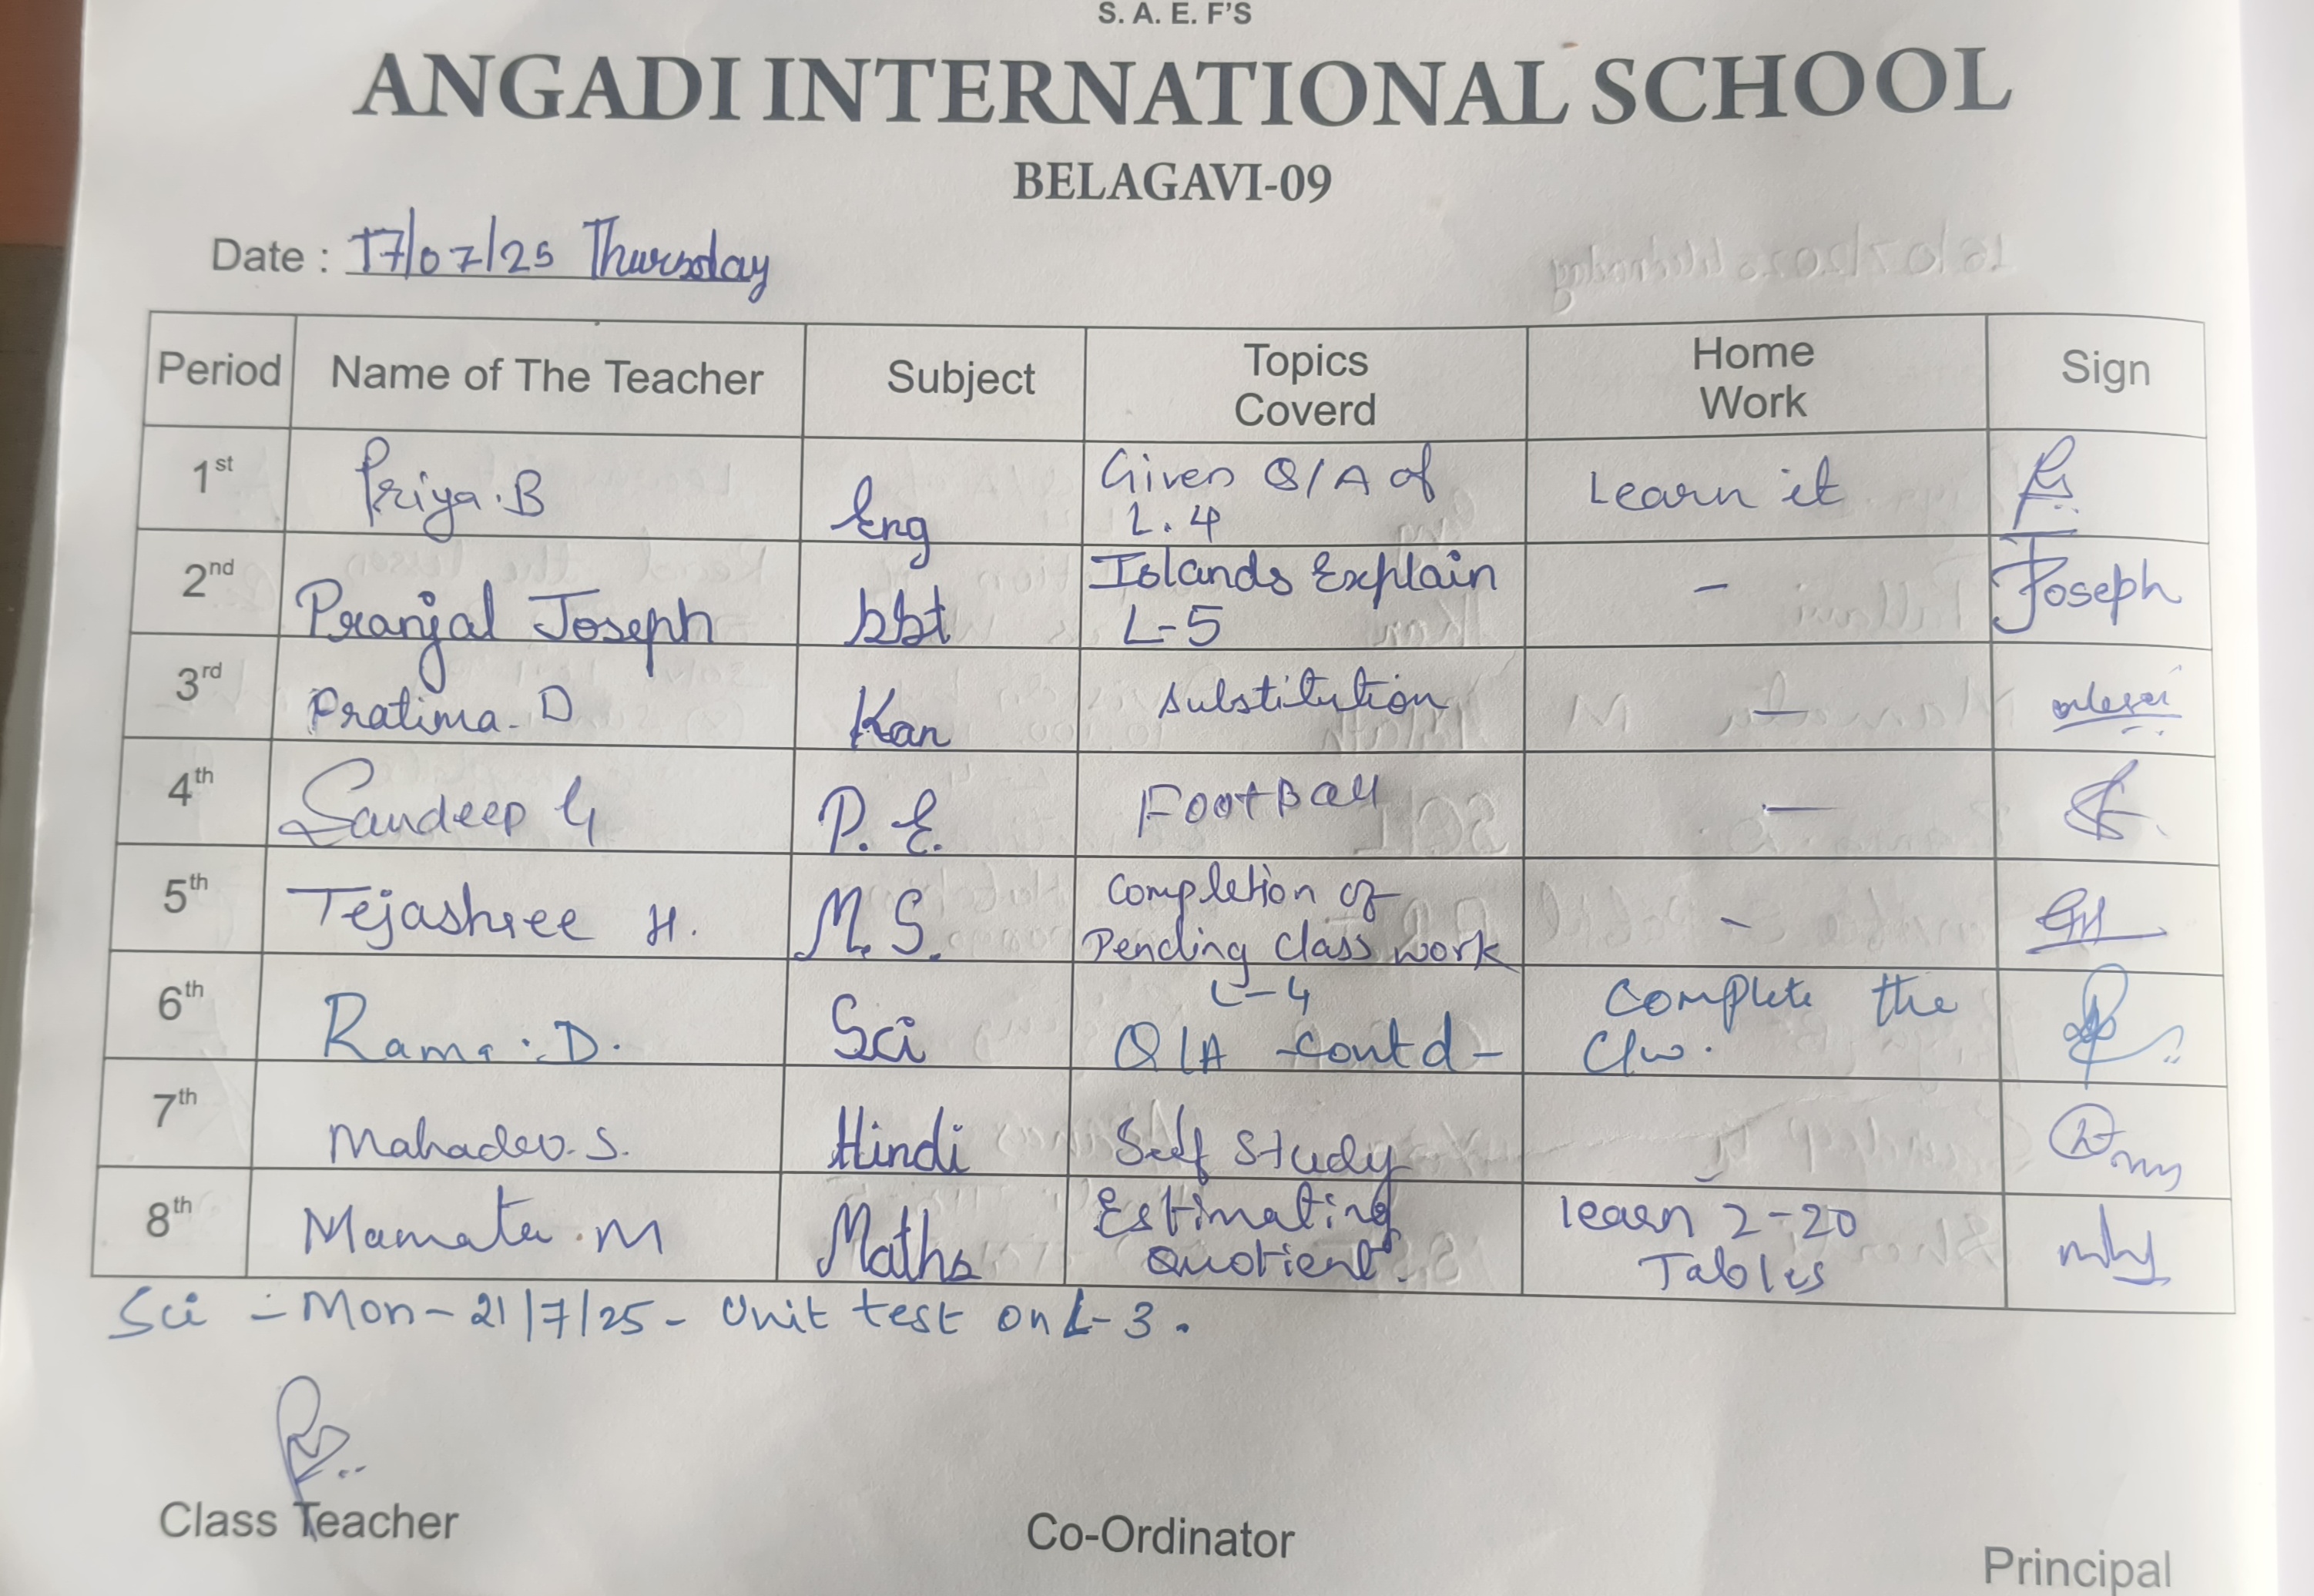 S. A. E. F'S
ANGADI INTERNATIONAL SCHOOL
BELAGAVI-09
Date : 17/07/25 Thursday
Period Name of The Teacher Subject Topics Coverd Home Work Sign
1st Priya.B Eng Given Q/A of L.4 Learn it
2nd Pranjal Joseph bbt Islands Explain L-5 - Joseph
3rd Pratima. D Kan Substitution —
4th Sandeep G P. E. FootBall —
5th Tejashree H. M. S. Completion of Pending Class work -
6th Rama. D. Sci L-4 Q/A -contd- Complete the C/w.
7th Mahadev. S. Hindi Self Study -
8th Mamata. M Maths Estimating Quotient. learn 2-20 Tables
Sci - Mon - 21/7/25 - Unit test on L-3.
Class Teacher
Co-Ordinator
Principal